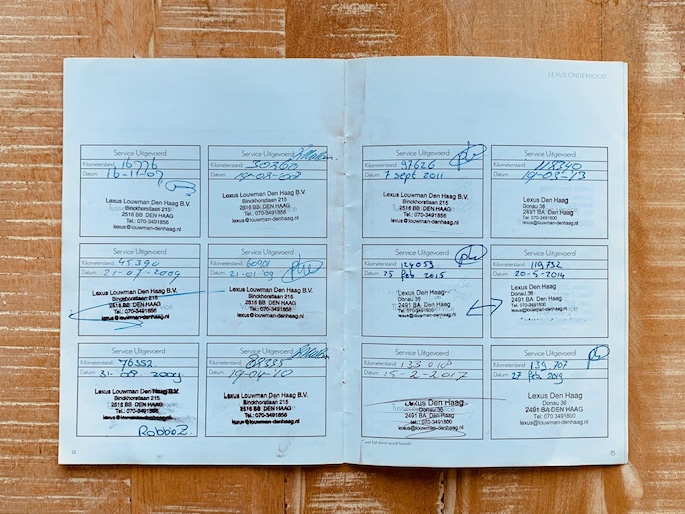 LEXUS ONDERHOUD
Service Uitgevoerd
Kilometerstand 16776
Datum 16-11-07
Lexus Louwman Den Haag B.V.
Binckhorstlaan 215
2516 BB DEN HAAG
Tel.: 070-3491856
lexus@louwman-denhaag.nl
Service Uitgevoerd
Kilometerstand 30360
Datum
Lexus Louwman Den Haag B.V.
Binckhorstlaan 215
2516 BB DEN HAAG
Tel.: 070-3491856
lexus@louwman-denhaag.nl
Service Uitgevoerd
Kilometerstand 45390
Datum 21-07-2009
Lexus Louwman Den Haag B.V.
Binckhorstlaan 215
2516 BB DEN HAAG
Tel.: 070-3491856
lexus@louwman-denhaag.nl
Service Uitgevoerd
Kilometerstand 60901
Datum 21-01-09
Lexus Louwman Den Haag B.V.
Binckhorstlaan 215
2516 BB DEN HAAG
Tel.: 070-3491856
lexus@louwman-denhaag.nl
Service Uitgevoerd
Kilometerstand 76552
Datum 31-08-2009
Lexus Louwman Den Haag B.V.
Binckhorstlaan 215
2516 BB DEN HAAG
Tel.: 070-3491856
lexus@louwman-denhaag.nl
Service Uitgevoerd
Kilometerstand
Datum 19-04-10
Lexus Louwman Den Haag B.V.
Binckhorstlaan 215
2516 BB DEN HAAG
Tel.: 070-3491856
lexus@louwman-denhaag.nl
14
Service Uitgevoerd
Kilometerstand 97626
Datum 7 sept 2011
Lexus Louwman Den Haag B.V.
Binckhorstlaan 215
2516 BB DEN HAAG
Tel.: 070-3491856
lexus@louwman-denhaag.nl
Service Uitgevoerd
Kilometerstand 118340
Datum 19-03-13
Lexus Den Haag
Donau 36
2491 BA Den Haag
Tel.: 070-3491800
lexus@louwman-denhaag.nl
Service Uitgevoerd
Kilometerstand 124059
Datum 25 feb 2015
Lexus Den Haag
Donau 36
2491 BA DEN HAAG
Tel.: 070-3491800
lexus@louwman-denhaag.nl
Service Uitgevoerd
Kilometerstand 119,732
Datum 20-5-2014
Lexus Den Haag
Donau 36
2491 BA Den Haag
Tel.: 070-3491800
lexus@louwman-denhaag.nl
Service Uitgevoerd
Kilometerstand 133 018
Datum 15-2-2017
Lexus Den Haag
Donau 36
2491 BA DEN HAAG
tel.: 070-3491800
lexus@louwman-denhaag.nl
Service Uitgevoerd
Kilometerstand 139.707
Datum 27 feb 2019
Lexus Den Haag
Donau 36
2491 BA DEN HAAG
tel.: 070-3491800
lexus@louwman-denhaag.nl
15